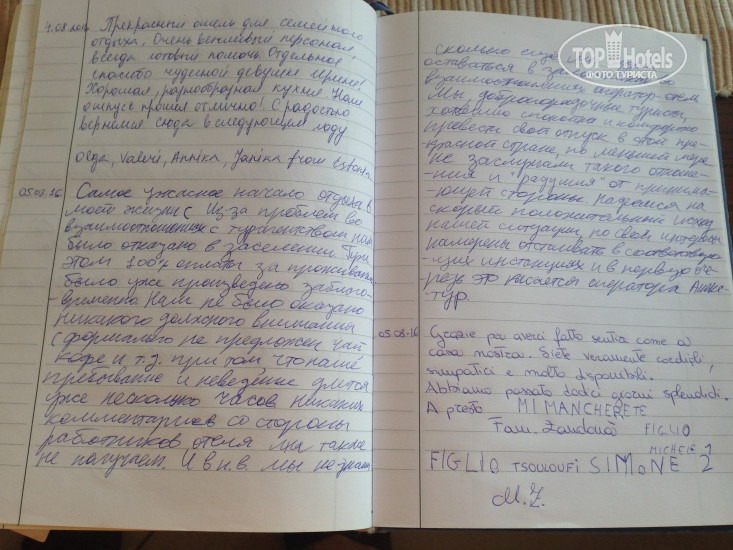 4.08.2016 Прекрасный отель для семейного
отдыха, Очень вежливый персонал,
всегда готовый помочь. Отдельное
спасибо чудесной девушке Ирине!
Хорошая, разнообразная кухня. Наш
отпуск прошел отлично! С радостью
вернёмся сюда в следующем году
Olga, Valeri, Annika, Janina from Estonia
05.08.16 Самое ужасное начало отдыха в
моей жизни. Из-за проблем во
взаимоотношениях с турагентством нам
было отказано в заселении. При
этом 100% оплата за проживание
было уже произведено заблаго-
-временно. Нам не было оказано
никакого должного внимания
с формального не предложен чай
кофе и т.д. при том что наше
пребывание и неведение длится
уже несколько часов. Никаких
комментариев со стороны
работников отеля мы также
не получаем. И в н.в. мы не знаем
сколько
оставаться в
взаимоотношениях оператор-отель
Мы, добропорядочные туристы,
хотевшие спокойно и комфортно
провести свой отпуск в этой пре-
красной стране, по меньшей мере
не заслужили такого отноше-
-ния и "радушия" от принима-
-ющей стороны. Надеемся на
скорый положительный исход
нашей ситуации, но свои интересы
намерены отстаивать в соответствую-
-щих инстанциях и в первую оче-
-редь это касается оператора Анекс-
тур.
TOP Hotels
ФОТО ТУРИСТА
05-08-16 Grazie per averci fatto sentire come a
casa nostra. Siete veramente cordiali,
simpatici e molto disponibili.
Abbiamo passato dodici giorni splendidi.
A presto MI MANCHERETE
Fam. FIGLIO
MICHELE 1
FIGLIO TSOULOUFI SIMONE 2
M.Z.